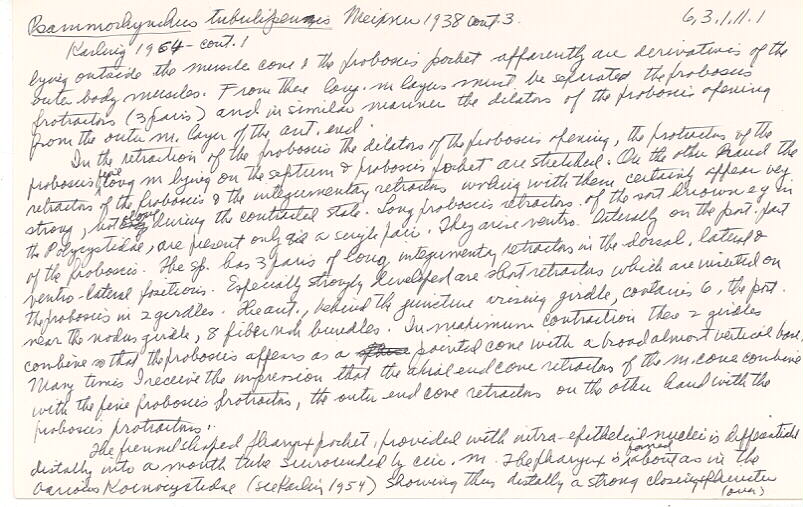 Psammorhynchus tubulipennis Meixner 1938 cont. 3. 6,3.1.11.1
Karling 1964 - cont. 1
lying outside the muscle cone & the proboscis pocket apparently are derivatives of the
outer body muscles. From these long. m layers must be separated the proboscis
protractors (3 pairs) and in similar manner the dilators of the proboscis opening
from the outer m. layer of the ant. end.
In the retraction of the proboscis the dilators of the proboscis opening, the protractors of the
proboscis, fine long m lying on the septum & proboscis pocket are stretched. On the other hand the
retractors of the proboscis & the integumentary retractors working with them certainly appear very
strong, but during the contracted state. Long proboscis retractors of the sort known eg in
the Polycystidae, are present only as a single pair. They arise ventro-laterally on the post. part
of the proboscis. The sp. has 3 pairs of long integumentary retractors in the dorsal, lateral &
ventro-lateral positions. Especially strongly developed are short retractors which are inserted on
the proboscis in 2 girdles. The ant., behind the juncture arising girdle, contains 6, the post.
near the nodus girdle, 8 fiber rich bundles. In maximum contraction these 2 girdles
combine so that the proboscis appears as a pointed cone with a broad almost vertical base.
Many times I receive the impression that the axial end cone retractors of the m. cone combine
with the fine proboscis protractors, the outer end cone retractors on the other hand with the
proboscis protractors.
The funnel shaped pharynx pocket, provided with intra-epithelial nuclei is differentiated
distally into a mouth tube surrounded by circ. m. The pharynx is formed about as in the
various Koinocystidae (see Karling 1954) showing thus distally a strong closing sphincter
(over)